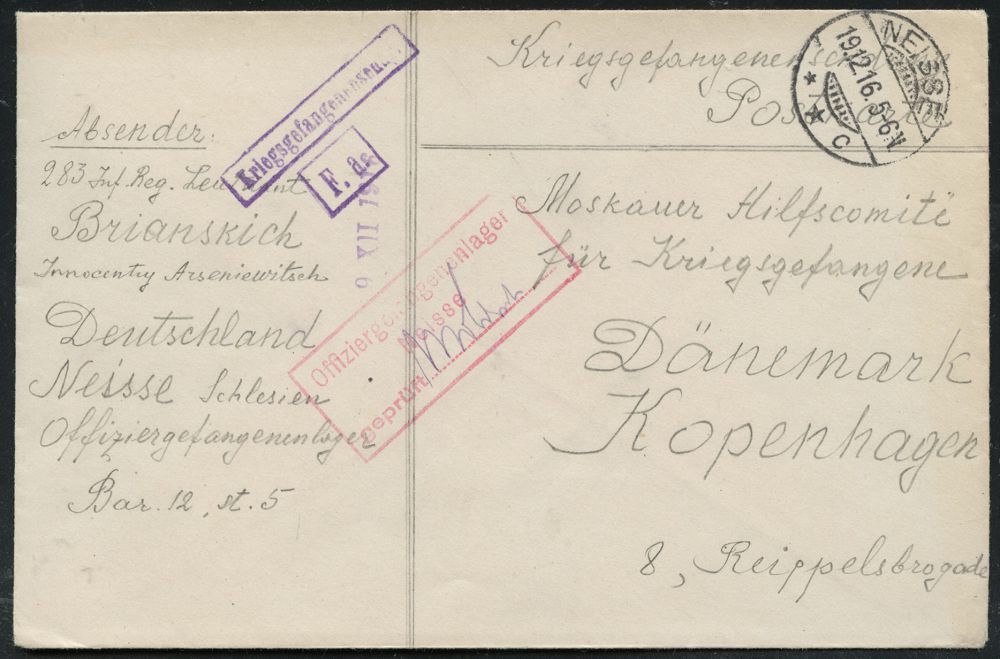 Kriegsgefangenensend
Postkarte
NEISSE
19.12.16.5-6N
c
Kriegsgefangenensendg.
F. a.
9 XII 1916
Absender:
283 Inf. Reg. Leutnant
Brianskich
Innocentiy Arseniewitsch
Deutschland
Neisse Schlesien
Offiziergefangenenlager
Bar. 12, st. 5
Offiziergefangenenlager
Neisse
geprüft
Moskauer Hilfscomite
für Kriegsgefangene
Dänemark
Kopenhagen
8, Reippelsbrogade